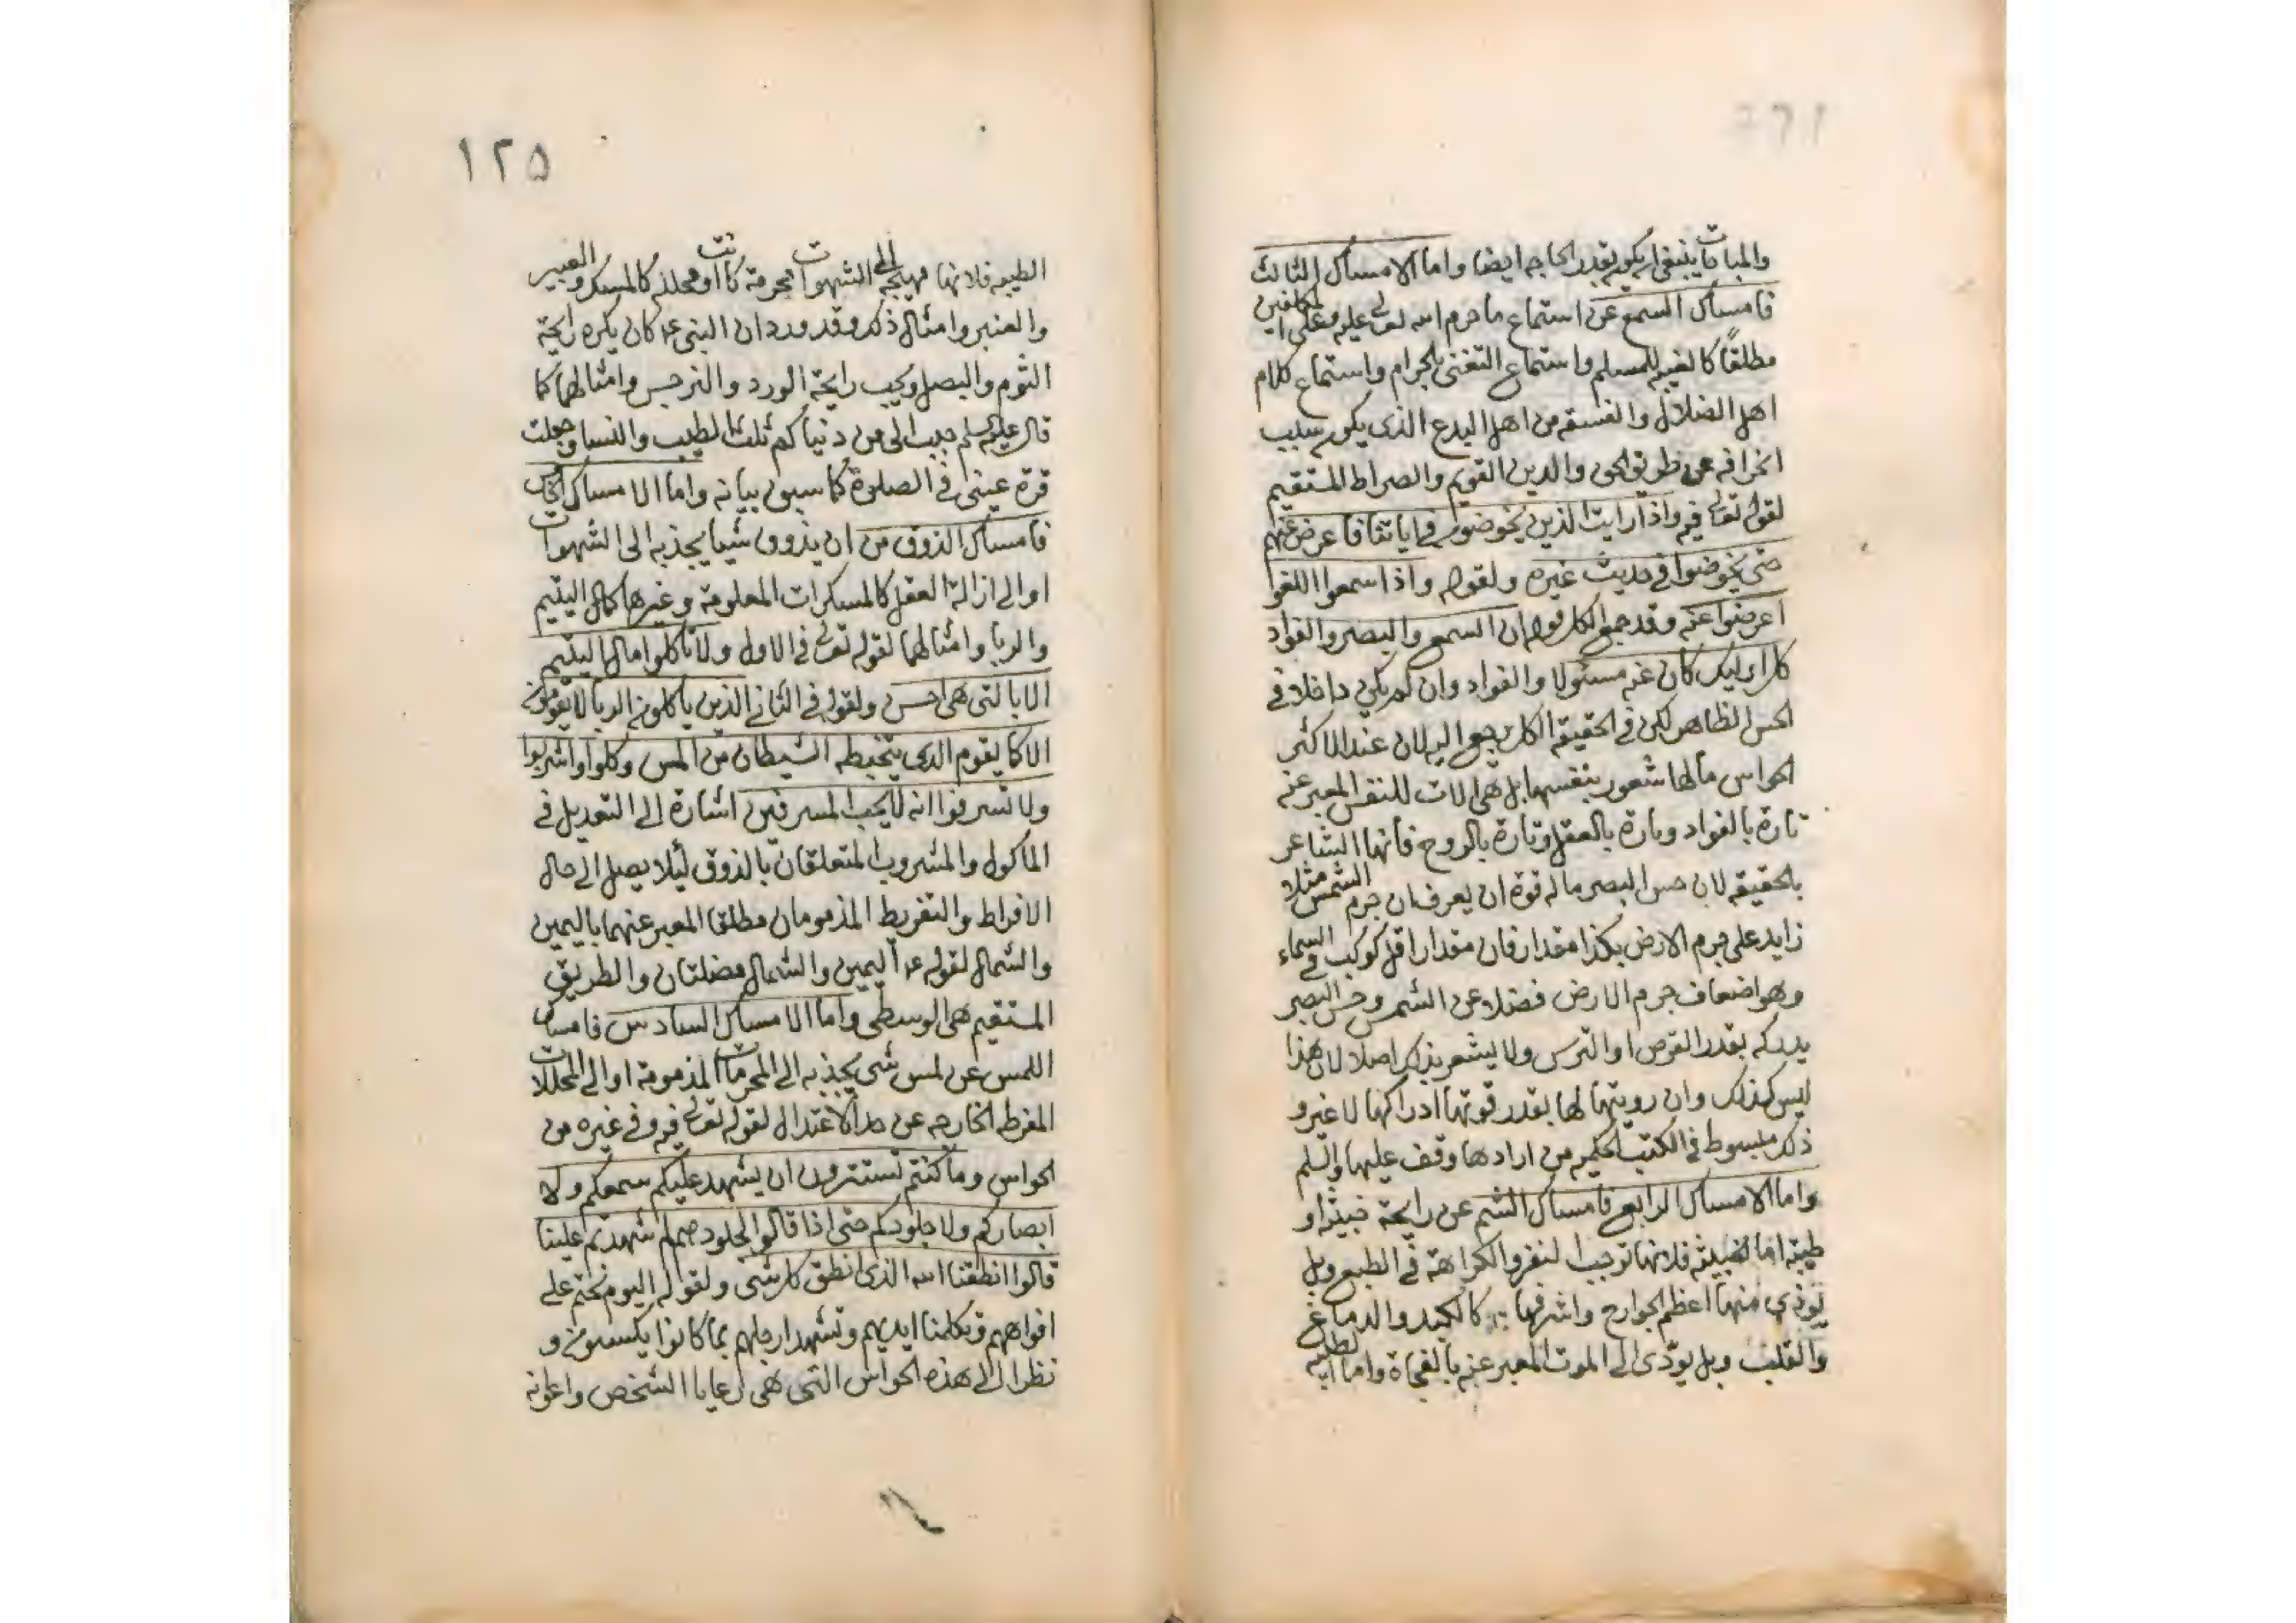 والمباحات ينبغي ان يكون بقدر الحاجه ايضا واما الامساك الثالث
فامساك السمع عن استماع ما حرم الله تعالى عليه وعلى المكلفين
مطلقاً كالغيبه للمسلم واستماع التغنى بالحرام واستماع كلام
اهل الضلال والفسقه من اهل البدع الذى يكون سبب
انحرافه عن طريق الحق والدين القويم والصراط المستقيم
لقوله تعالى فيه واذا رايت الذين يخوضون فى اياتنا فاعرض عنهم
حتى يخوضوا فى حديث غيره ولقوله واذا سمعوا اللغو
اعرضوا عنه وقد جمع الكل قوله ان السمع والبصر والفواد
كل اوليك كان عنه مسئولا والفواد وان لم يكن داخلا فى
الحس الظاهر لكن فى الحقيقه الكل يرجع اليه لان عند الاكثر
الحواس ما لها شعور بنفسها بل هى الات للنفس المعبر عنه
تارة بالفواد وتارة بالعقل وتارة بالروح فانها الشاعر
بالحقيقه لان حس البصر ما له قوة ان يعرف ان جرم الشمس مثلا
زايد على جرم الارض بكذا مقدار فان مقدار اقل كوكب فى السماء
وهو اضعاف جرم الارض فضلا عن الشمس وحس البصر
يدركه بقدر القرص او الترس ولا يشعر بذلك اصلا لان هذا
ليس كذلك وان رويتها لها بقدر قوتها ادراكها لا غير و
ذلك مبسوط فى الكتب الحكميه من ارادها وقف عليها والسلم
واما الامساك الرابع فامساك الشم عن رايحة خبيثه او
طيبة اما الخبيثه فلانها توجب النفر والكراهة فى الطبع وبل
يوذى منها اعظم الجوارح واشرفها كالكبد والدماغ
والقلب وبل يودى الى الموت المعبر عنه بالفجاة واما الطيبه
١٢٥
الطيبه فلانها مهيجه الى الشهوات محرمة كانت او محلله كالمسك والعبير
والعنبر وامثال ذلك وقد ورد ان النبى عم كان يكره رايحة
الثوم والبصل ويحب رايحة الورد والنرجس وامثالهما كما
قال عليه السلم حبب الى من دنياكم ثلث الطيب والنسا وجعلت
قرة عينى فى الصلوة كما سبق بيانه واما الامساك الخامس
فامساك الذوق من ان يذوق شيا يجذبه الى الشهوات
او الى ازالة العقل كالمسكرات المعلومة وغيرها كمال اليتيم
والربا وامثالهما لقوله تعالى فى الاول ولا تاكلوا مال اليتيم
الا بالتى هى احسن ولقوله فى الثانى الذين ياكلون الربا لا يقومون
الا كما يقوم الذى يتخبطه الشيطان من المس وكلوا واشربوا
ولا تسرفوا انه لا يحب المسرفين اشارة الى التعديل فى
الماكول والمشروب المتعلقان بالذوق ليلا يصل الى حال
الافراط والتفريط المذمومان مطلقا المعبر عنهما باليمين
والشمال لقوله عم اليمين والشمال مضلتان والطريق
المستقيم هى الوسطى واما الامساك السادس فامساك
اللمس عن لمس شى يجذبه الى المحرمات المذمومة او الى المحللات
المفرطه الخارجه عن حد الاعتدال لقوله تعالى فيه وفى غيره من
الحواس وما كنتم تستترون ان يشهد عليكم سمعكم ولا
ابصاركم ولا جلودكم حتى اذا قالوا لجلودهم لم شهدتم علينا
قالوا انطقنا الله الذى انطق كل شى ولقوله اليوم نختم على
افواههم وتكلمنا ايديهم وتشهد ارجلهم بما كانوا يكسبون و
نظرا الى هذه الحواس التى هى رعايا الشخص واعوانه